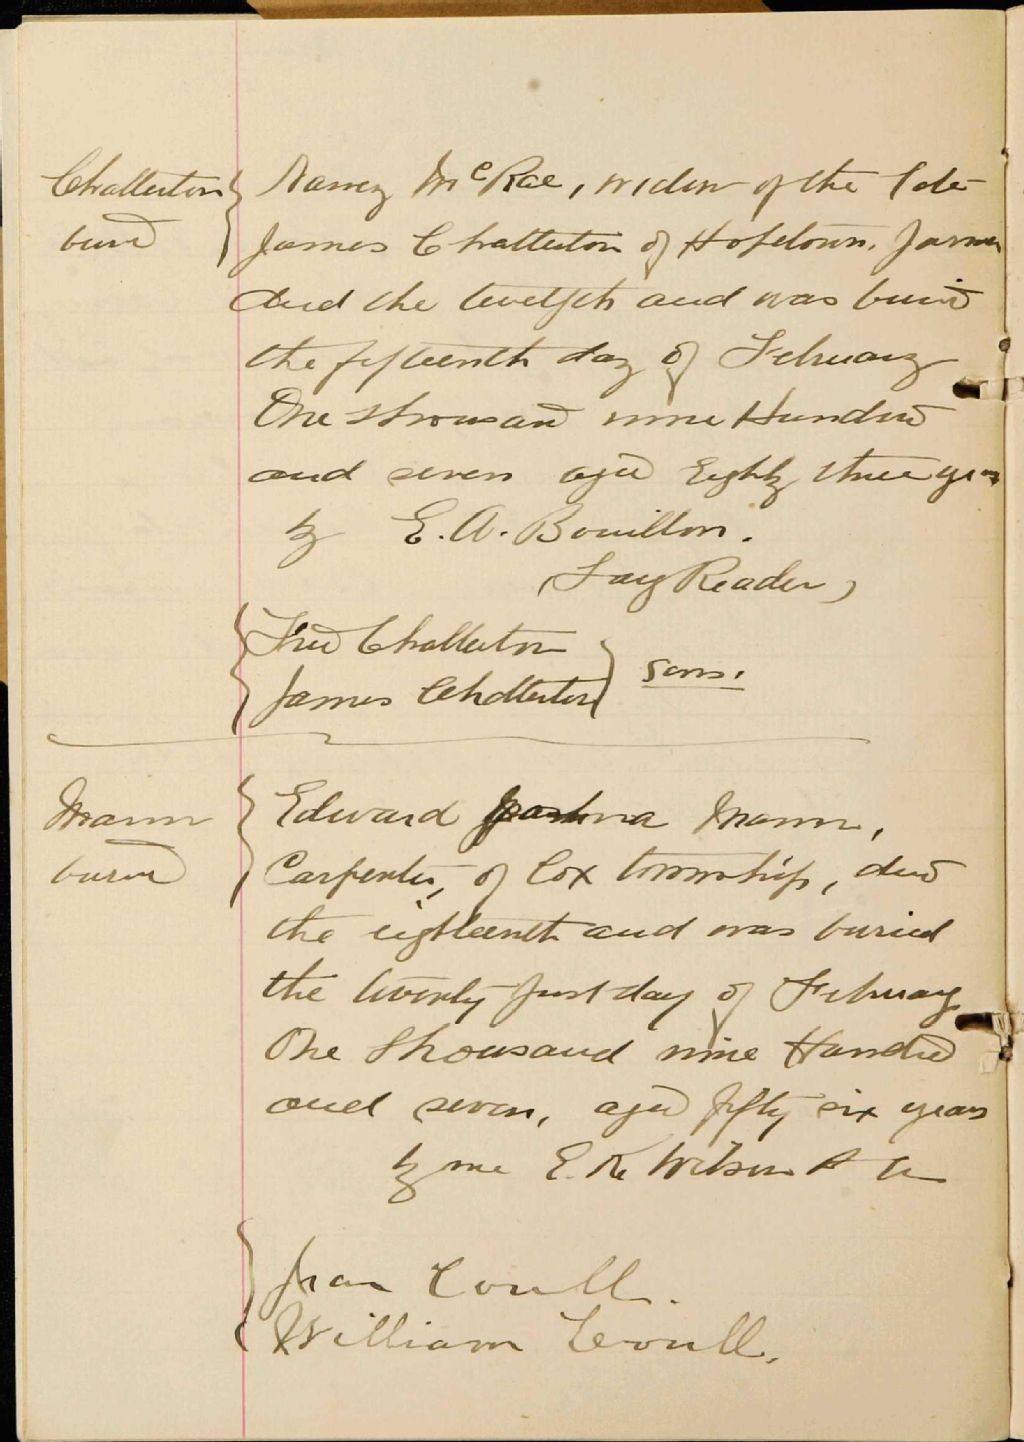 Chatterton
buried
Nancy McRae, widow of the late
James Chatterton of Hopetown, farmer
died the twelfth and was buried
the fifteenth day of February
One thousand nine Hundred
and seven aged Eighty three years
by E. A. Bouillon.
(Lay Reader)
Fred Chatterton
James Chatterton
sons.
Mann
buried
Edward Mann,
Carpenter, of Cox township, died
the eighteenth and was buried
the twenty first day of February
One Thousand nine Hundred
and seven, aged fifty six years
by me E. R. Wilson
Coull.
William Coull.